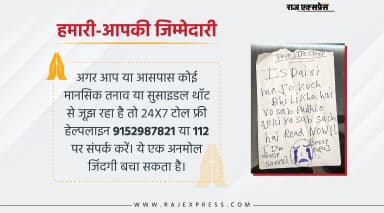 राज एक्सप्रेस
हमारी-आपकी जिम्मेदारी
अगर आप या आसपास कोई
मानसिक तनाव या सुसाइडल थॉट
से जूझ रहा है तो 24X7 टोल फ्री
हेल्पलाइन 9152987821 या 112
पर संपर्क करें। ये एक अनमोल
जिंदगी बचा सकता है।
Is Daisi
me Jo kuch
Bhi Likha hai
vo sab Padhlo
vo sab sach
hai Read NOW!!
WWW.RAJEXPRESS.COM